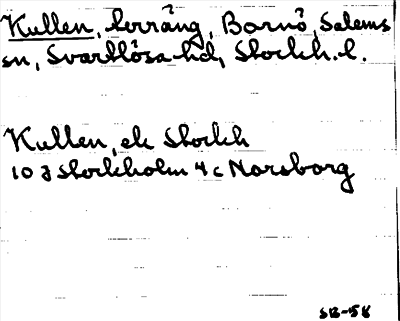 Kullen, terräng, Bornö, Salems
sn, Svartlösa hd, Stockh. l.
Kullen, ek Stockh
10 I Stockholm 4 c Norsborg
SB-58